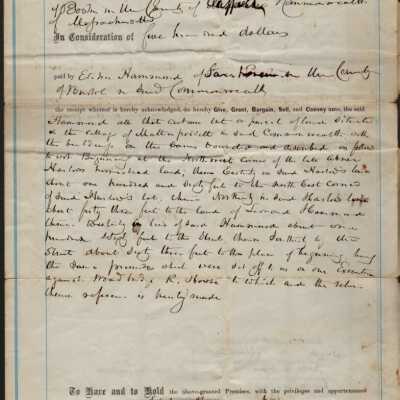 of Boston in the County of Suffolk Commonwealth
of Massachusetts
In Consideration of five hundred dollars
paid by Hammond of in the County
of in said Commonwealth
the receipt whereof is hereby acknowledged, do hereby Give, Grant, Bargain, Sell, and Convey unto the said
Hammond all that certain lot or parcel of land situate
at the village of Mattapoisett in said Commonwealth with
the buildings on the same bounded and described as follows
to wit Beginning at the Northwest corner of the late Abner
Harlow homestead land, thence Easterly in said Harlow's line
about one hundred and sixty feet to the North East corner
of said Harlow's lot, thence Northerly in said Harlow's
about forty three feet to the land of Leonard Hammond
thence Westerly in line of said Hammond about one
hundred sixty feet to the Street thence Southerly by the
street about sixty three feet to the place of beginning being
the same premises which were set off to us on our Execution
against Woodbridge R. Howes to which and the return
thereon reference is hereby made
To Have and to Hold the above-granted Premises, with the privileges and appurtenances